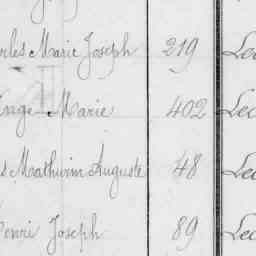 rles Marie Joseph 219 Lec
Ange Marie 402 Lec
s Mathurin Auguste 48 Lec
Henri Joseph 89 Lec